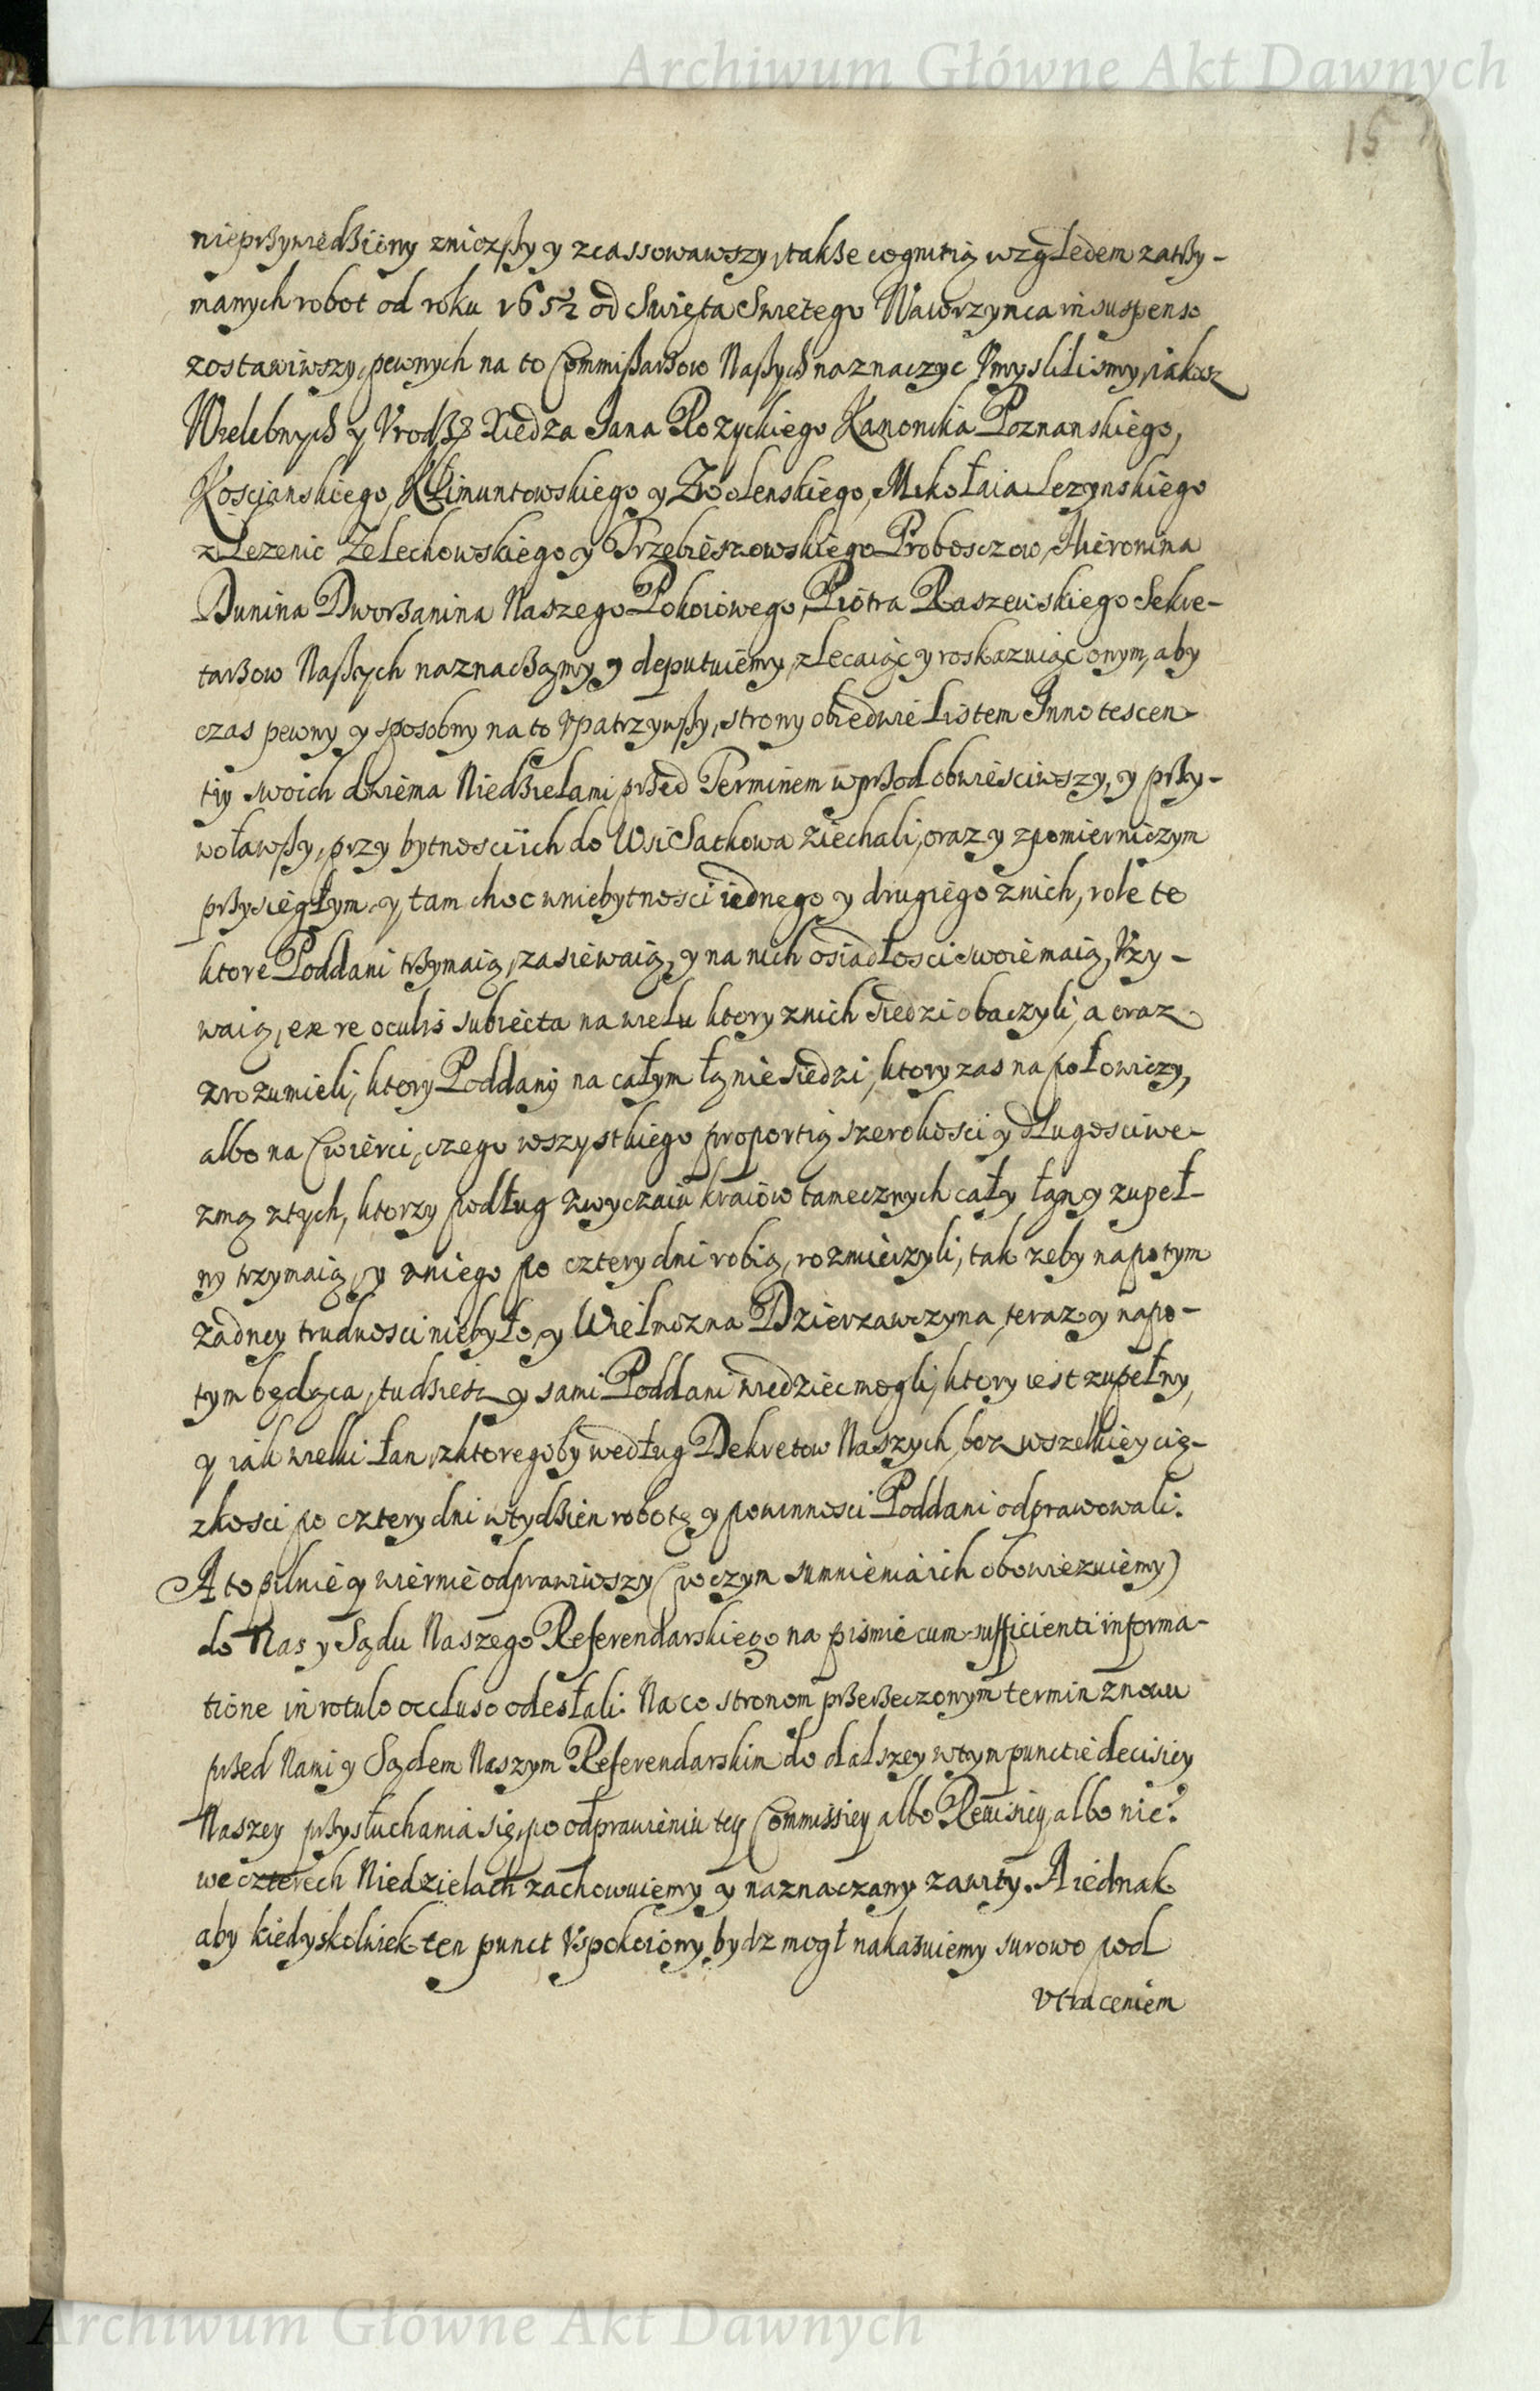 Archiwum Główne Akt Dawnych
15
nieprzywiedziony zniozszy y zcassowawszy, także cognitią względem zatrzy-
manych robot od roku 1652 od Swięta Swiętego Wawrzynca in suspenso
zostawiwszy, pewnych na to Commissarzow Naszych naznaczyc Vmyslilismy, iakosz
Wielebnych y Vrodz: Xiedza Jana Rozyckiego Kanonika Poznanskiego,
Koscianskiego, Klimuntowskiego y Zwolenskiego, Mikołaia Lezenskiego
z Lezenic Zelechowskiego y Trzebieszowskiego Proboszczow, Hieronima
Dunina Dworzanina Naszego Pokoiowego, Piotra Raszewskiego Sekre-
tarzow Naszych naznaczamy y deputuiemy, zlecaiąc y roskazuiąc onym, aby
czas pewny y sposobny na to vpatrzywszy, strony obiedwie Listem Innotescen-
tiy swoich dwiema Niedzielami przed Terminem wprzod obwiesciwszy, y przy-
woławszy, przy bytnosci ich do Wsi Satkowa ziechali, oraz y zpomierniczym
przysięgłym, y tam choc wniebytnosci iednego y drugiego znich, role te
ktore Poddani trzymaią, zasiewaią, y na nich osiadłosci swoie maią, Vzy-
waią, ex re oculis subiecta na wielu ktory znich siedzi obaczyli, a oraz
zrozumieli, ktory Poddany na całym łanie siedzi, ktory zas na połowiczy,
albo na Cwierci, czego wszystkiego proportią szerokosci y długosci we-
zmą ztych, ktorzy podług zwyczaiu kraiow tamecznych cały łan y zupeł-
ny trzymaią, y zniego po cztery dni robią, rozmierzyli, tak zeby napotym
zadney trudnosci niebyło, y Wielmozna Dzierzawczyna teraz y napo-
tym będąca, tudziesz y sami Poddani wiedziec mogli, ktory iest zupełny,
y iak wielki Łan, zktoregoby według Dekretow Naszych, bez wszelkiey cią-
zkosci po cztery dni wtydzien robotę y powinnosci Poddani odprawowali.
A to pilnie y wiernie odprawiwszy (wczym sumnienia ich obowiezuiemy)
do Nas y Sądu Naszego Referendarskiego na pismie cum sufficienti informa-
tione in rotulo occluso odesłali. Na co stronom przerzeczonym termin znowu
przed Nami y Sądem Naszym Referendarskim do dalszey wtym punctie decisiey
Naszey przysłuchania się, po odprawieniu tey Commissiey albo Rewisiey, albo nie?
we czterech Niedzielach zachowuiemy y naznaczamy zawity. A iednak
aby kiedyskolwiek ten punct Vspokoiony bydz mogł nakazuiemy surowo pod
vtraceniem
Archiwum Główne Akt Dawnych